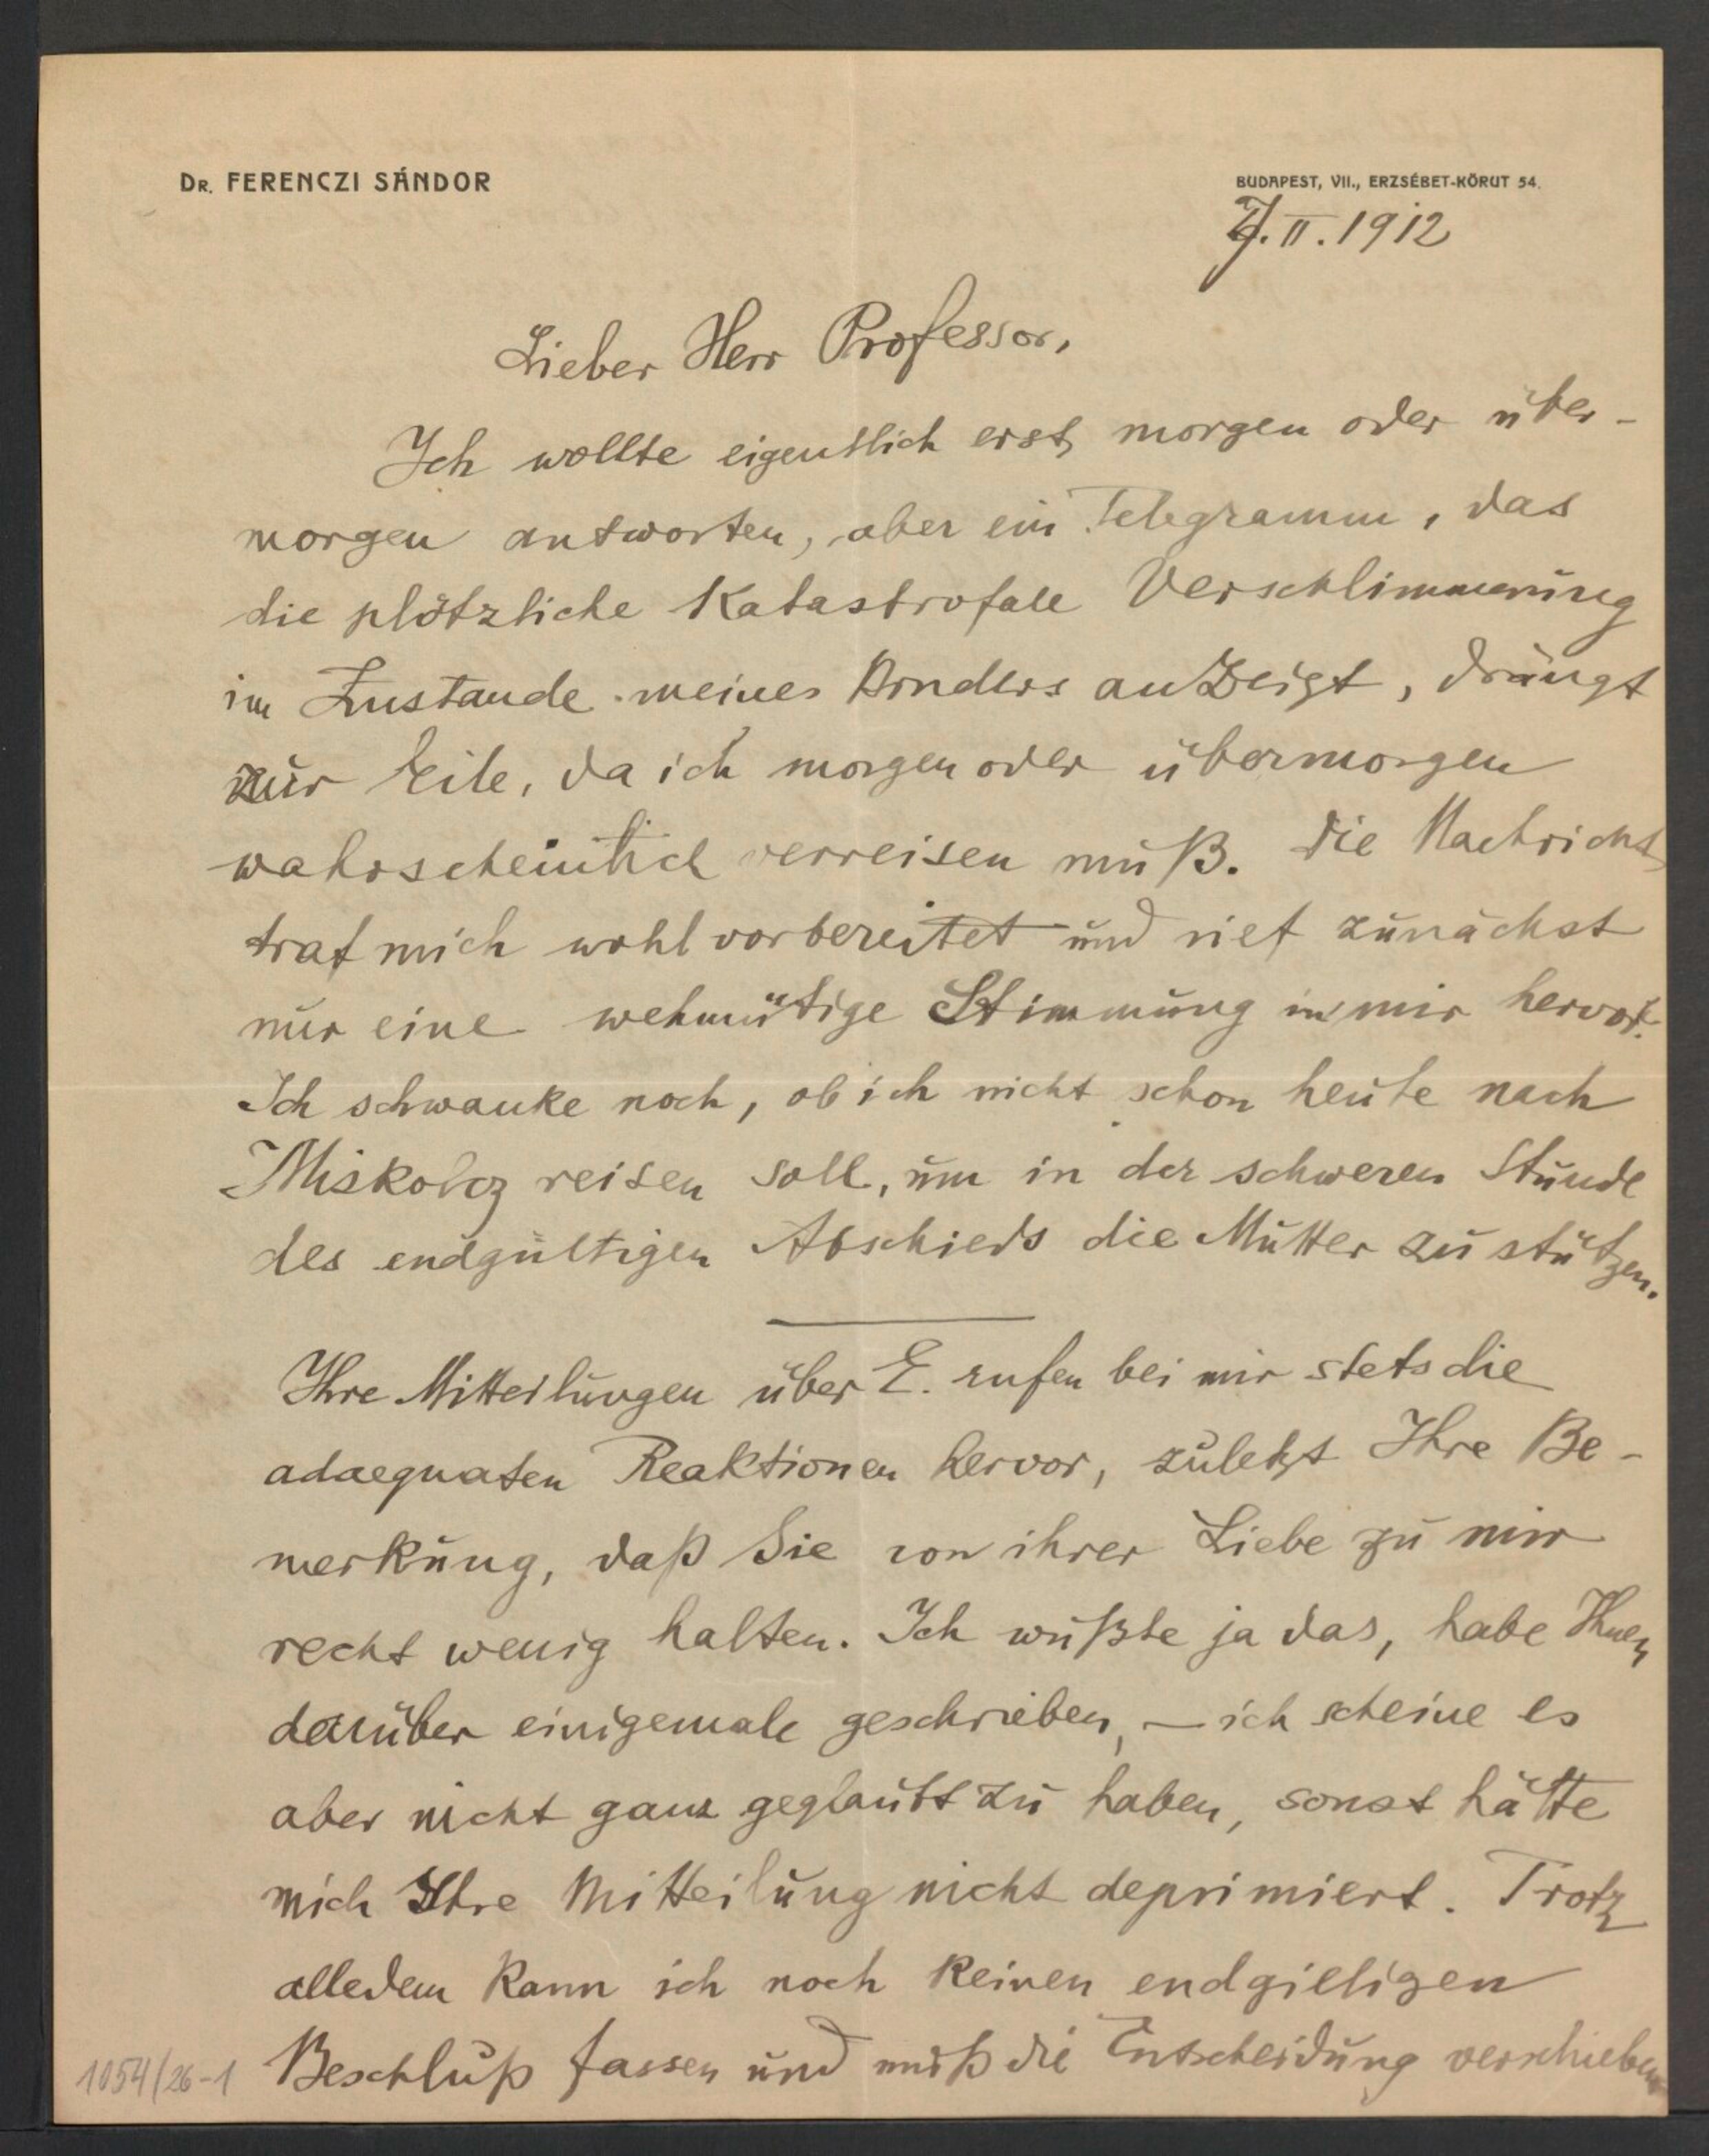 Dr. FERENCZI SÁNDOR
BUDAPEST, VII., ERZSÉBET-KÖRUT 54.
7.II.1912
Lieber Herr Professor,
Ich wollte eigentlich erst morgen oder über-
morgen antworten, aber ein Telegramm, das
die plötzliche Katastrofale Verschlimmerung
im Zustande meines Bruders anzeigt, drängt
zur Eile, da ich morgen oder übermorgen
wahrscheinlich verreisen muß. Die Nachricht
traf mich wohl vorbereitet und rief zunächst
nur eine wehmütige Stimmung in mir hervor.
Ich schwanke noch, ob ich nicht schon heute nach
Miskolcz reisen soll, um in der schweren Stunde
des endgültigen Abschieds die Mutter zu stützen.
Ihre Mitteilungen über E. rufen bei mir stets die
adaequaten Reaktionen hervor, zuletzt Ihre Be-
merkung, daß Sie von ihrer Liebe zu mir
recht wenig halten. Ich wußte ja das, habe Ihnen
darüber einigemale geschrieben, — ich scheine es
aber nicht ganz geglaubt zu haben, sonst hätte
mich Ihre Mitteilung nicht deprimiert. Trotz
alledem kann ich noch keinen endgiltigen
Beschluß fassen und muß die Entscheidung verschieben
1054/26-1